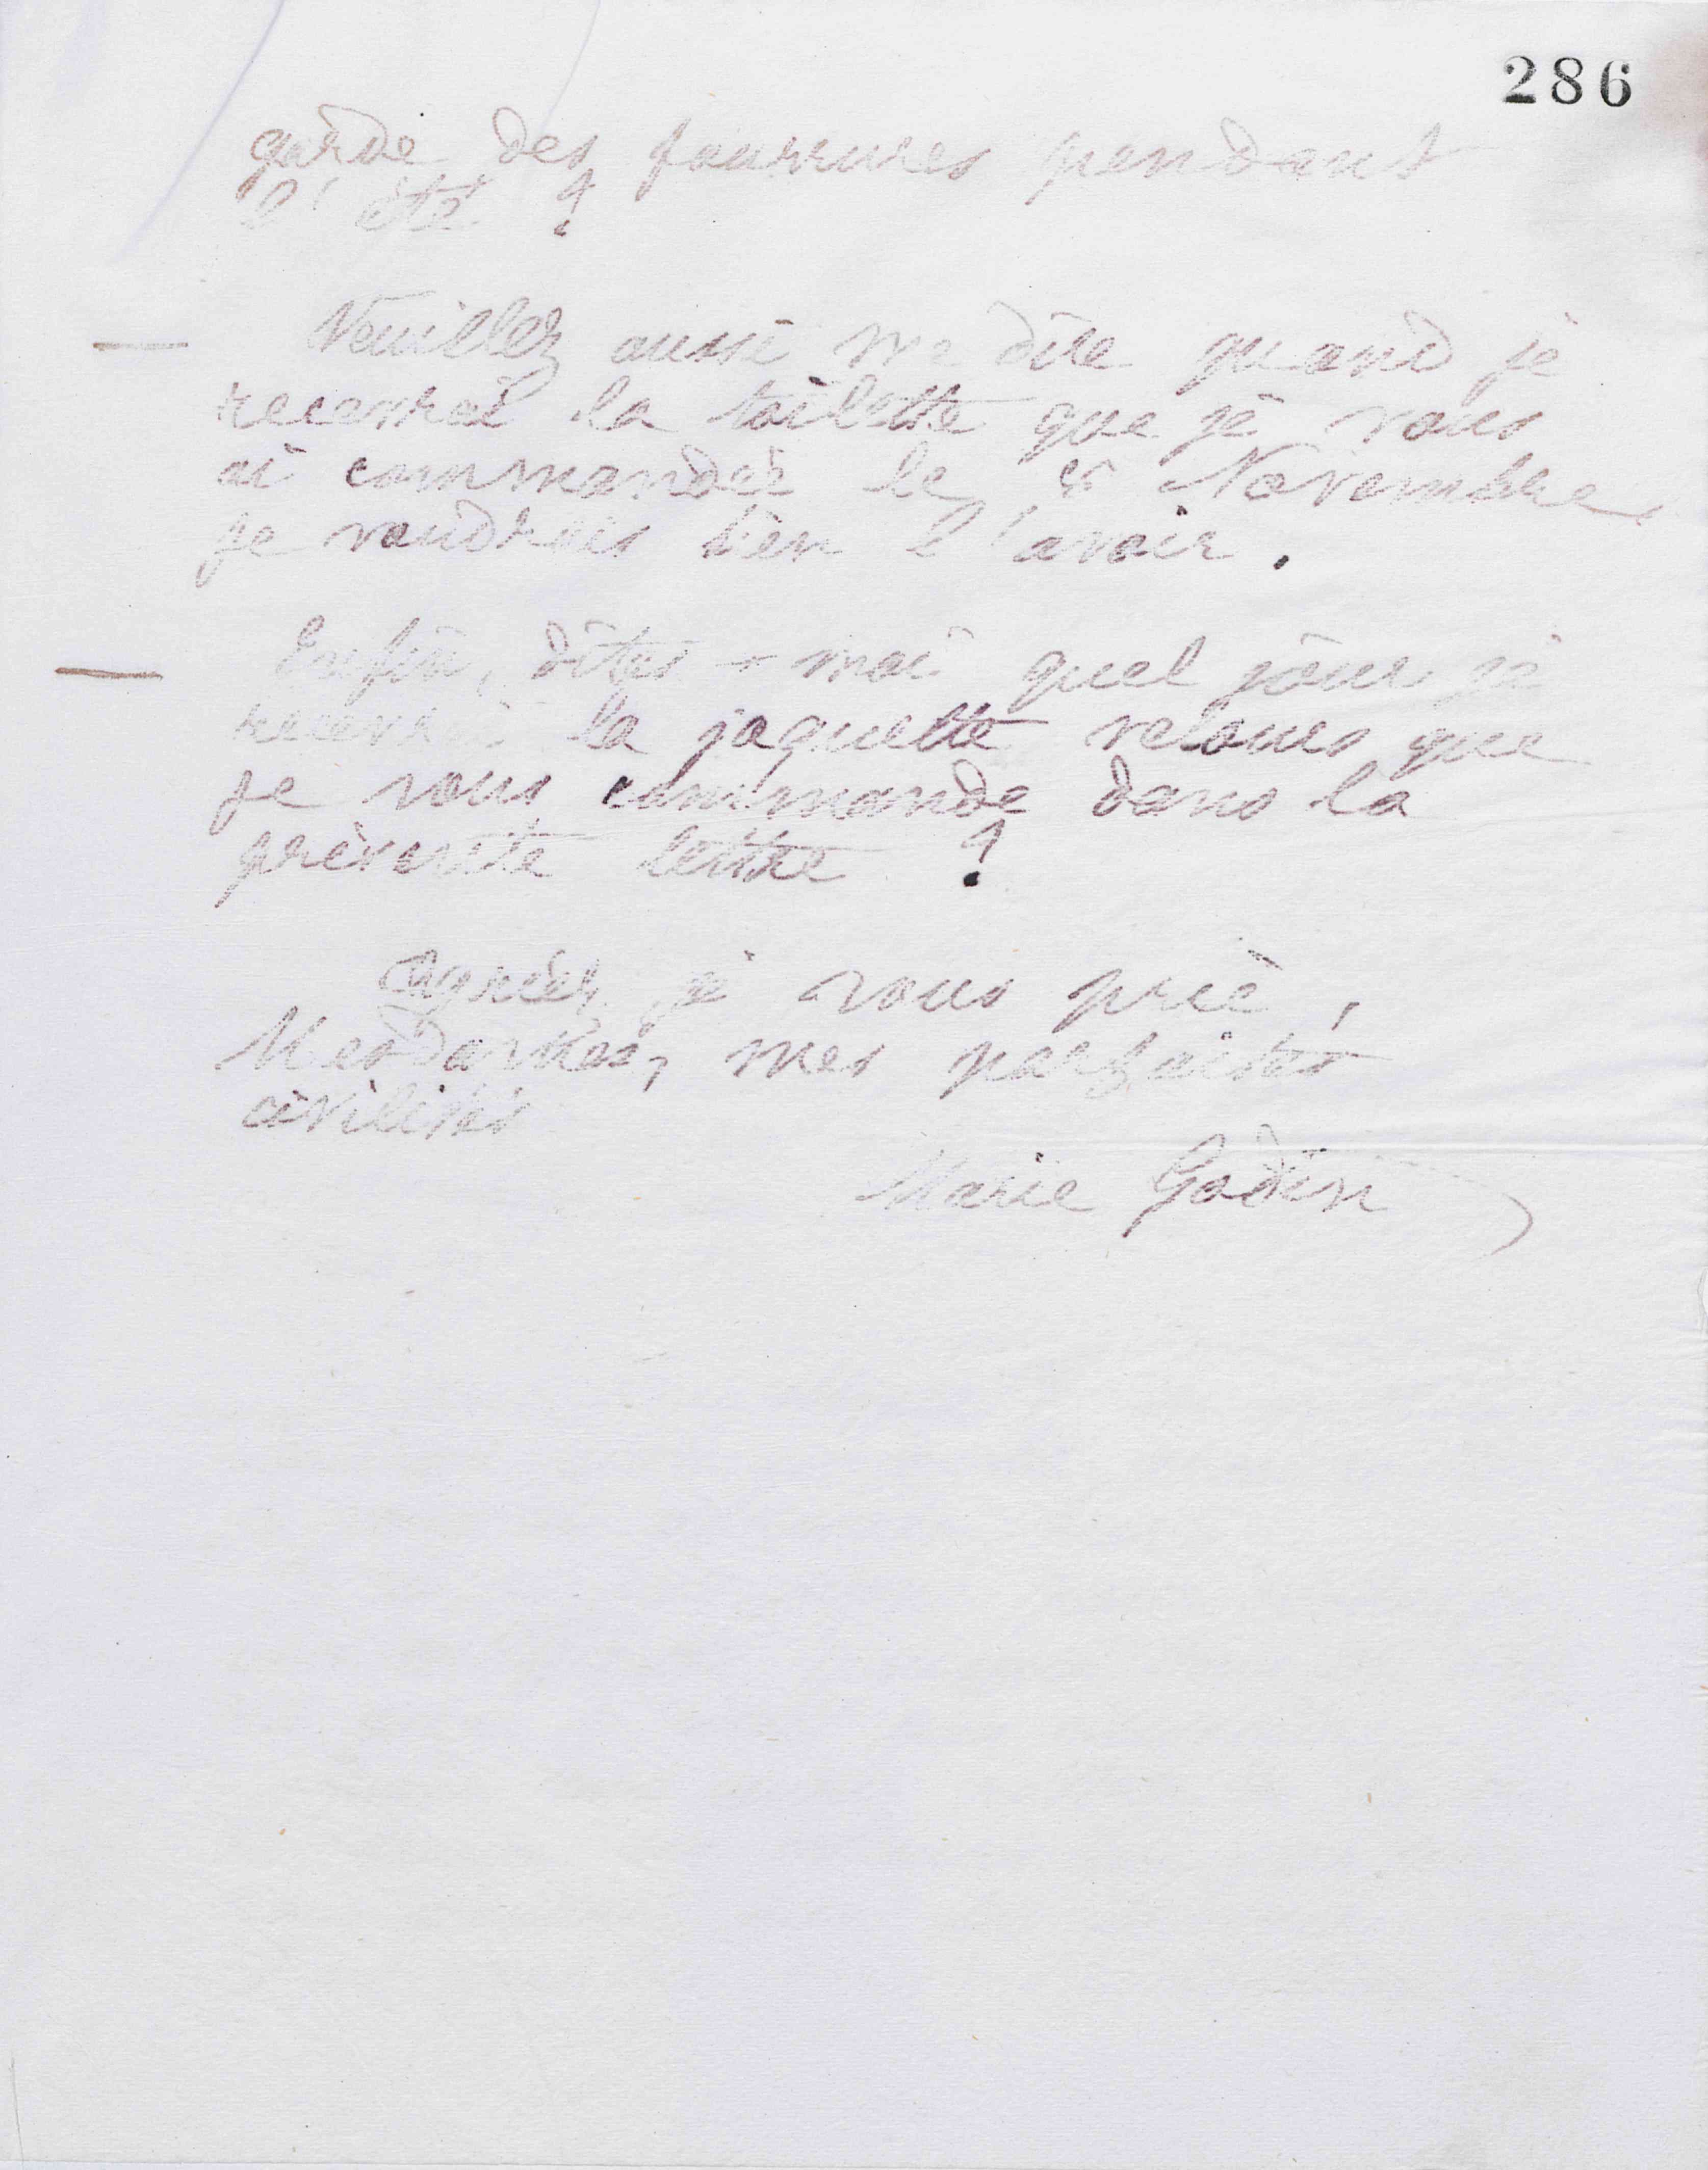 286
garde des fourrures pendant
l'été ?
Veuillez aussi me dire quand je
recevrai la toilette que je vous
ai commandée le 5 Novembre,
je voudrais bien l'avoir.
Enfin, dites-moi quel jour je
recevrai la jaquette velours que
je vous commande dans la
présente lettre ?
Agréez, je vous prie,
Mesdames, mes parfaites
civilités
Marie Godin